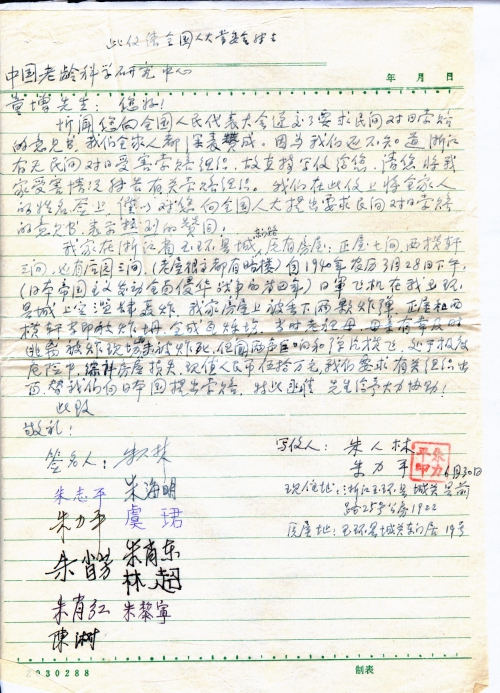 此仅信全国人大常委会转去
中国老龄科学研究中心
年 月 日
童增先生：您好！
忻闻您向全国人民代表大会递交了要求民间对日索赔
的意见书，我们全家人都深表赞成。因为我们还不知道浙江
有无民间对日受害索赔组织，故直接写仪给您，请您将我
家受害情况转告有关索赔组织。我们在此仪上将全家人
的姓名签上，对您向全国人大提出要求民间对日索赔
的意见书，表示热烈的赞同！
我家在浙江省玉环县城，原有房屋：正屋七间，两横轩
三间，也有后园三间，（老屋很主都有暗楼）自1940年农历3月28日下午，
（日本帝国主义发动全面侵华战争的第四年）日军飞机在我玉环
县城上空滥肆轰炸，我家房屋上被丢下两颗炸弹，正屋和西
横轩等即被炸坍，全成瓦烁场，当时老祖母、母亲有幸及时
逃离被炸现场未被炸死，但间两声巨响和弹片横飞，处于极度
危险中，房屋损失，现值人民币伍拾万元，我们要求有关组织出
面，替我们向日本国提出索赔，特此函请 先生给予大力协助！
此致
敬礼！
写仪人：朱人林
朱力平 月30日
朱力平印
签名人：朱人林
朱志平 朱海明
朱力平 虞珺
朱肖芳 朱肖东
林超
朱肖红 朱黎宁
陈湖
现住址：浙江玉环县城关县前
路25号
房屋地：玉环县城关东门居 19号
2030288
制表